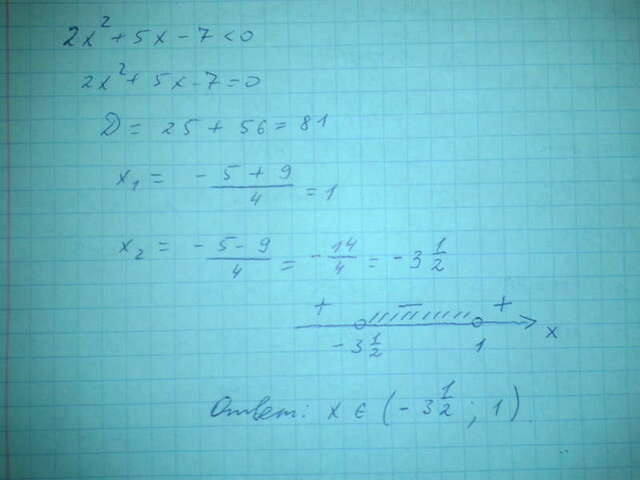 2x² + 5x - 7 < 0
2x² + 5x - 7 = 0
D = 25 + 56 = 81
x₁ = -5 + 9 / 4 = 1
x₂ = -5 - 9 / 4 = - 14/4 = -3 1/2
+ - +
-3 1/2 1 x
Ответ: x ∈ (-3 1/2 ; 1)